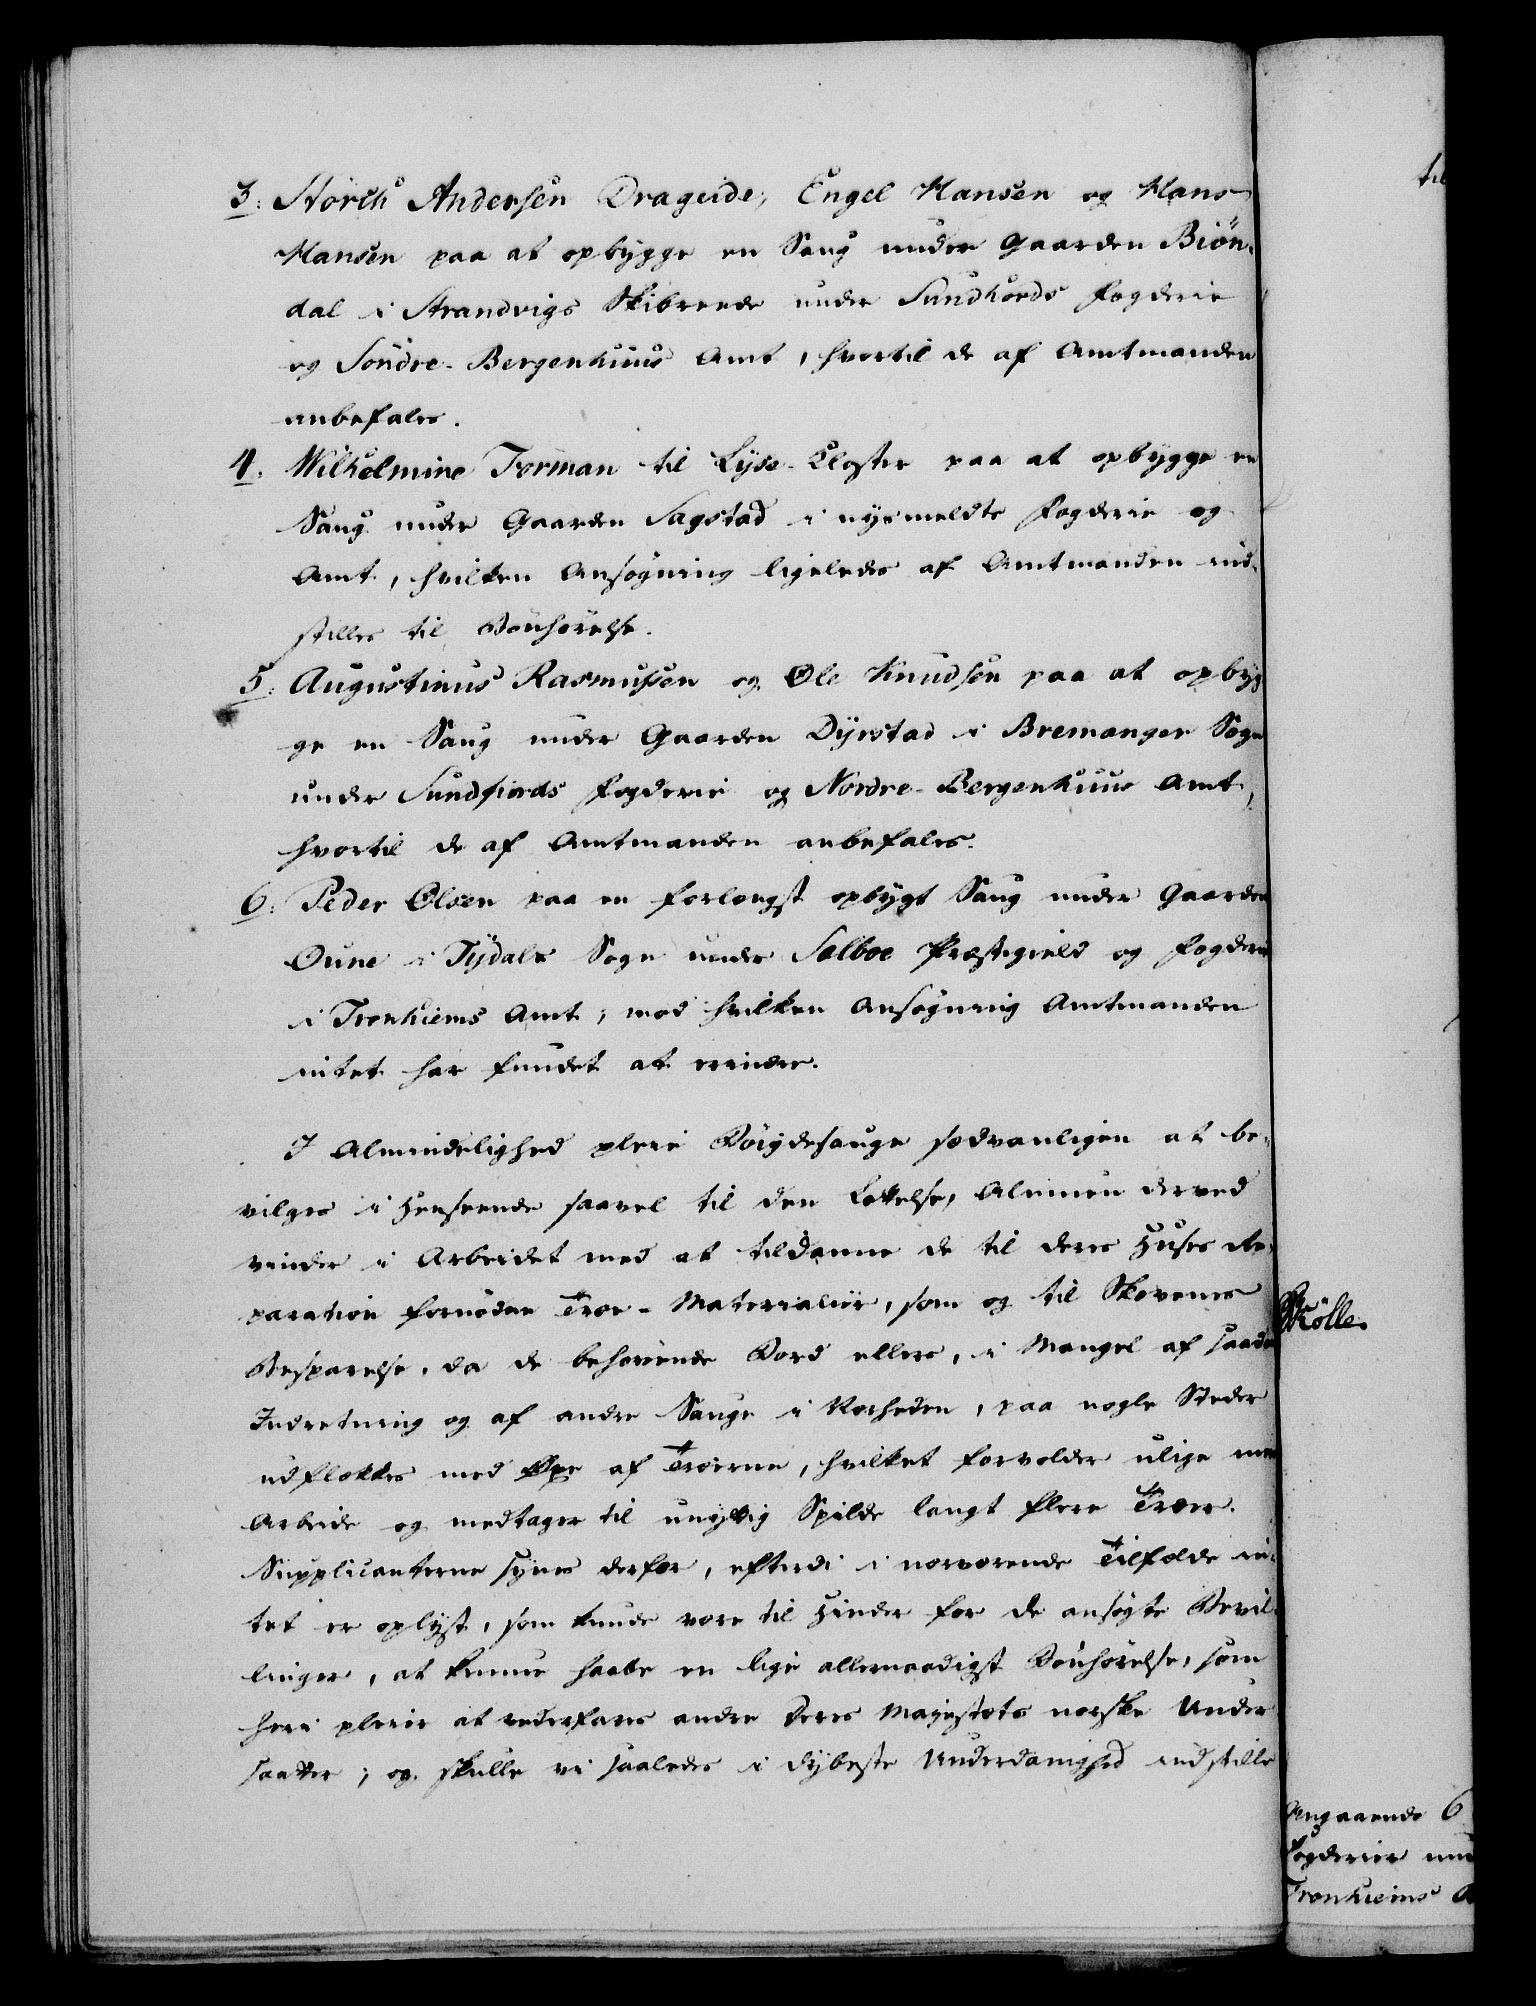 3: Störch Andersen Drageide, Engel Hansen og Hans
Hansen paa at opbygge en Saug under Gaarden Biön-
dal i Strandvigs Skibrede under Sundhords Fogderie
og Söndre-Bergenhuus Amt, hvortil de af Amtmanden
anbefales.
4. Wilhelmine Forman til Lyse-Closter paa at opbygge en
Saug under Gaarden Sagstad i nysmeldte Fogderie og
Amt, hvilken Ansögning ligeledes af Amtmanden ind-
stilles til Bönhörelse.
5: Augustinus Rasmussen og Ole Knudsen paa at opbyg-
ge en Saug under Gaarden Dyrstad i Bremanger Sogn
under Sundfiords Fogderie og Nordre-Bergenhuus Amt,
hvortil de af Amtmanden anbefales.
6: Peder Olsen paa en forlængst opbygt Saug under Gaarden
Oune i Tydals Sogn under Selboe Præstegield og Fogderie
i Tronhiems Amt; mod hvilken Ansögning Amtmanden
intet har fundet at erindre.
I Almindelighed pleie Böigdesauge sædvanligen at be-
vilges i Henseende saavel til den Lettelse, Almuen derved
vinder i Arbeidet med at tildanne de til deres Huses Re-
paration fornödne Træe-Materialier, som og til Skovenes
Besparelse, da de behövende Bord ellers, i Mangel af saadan
Indretning og af andre Sauge i Nærheden, paa nogle Steder
udflækkes med Öxe af Træerne, hvilket forvolder ulige meer
Arbeide og medtager til unyttig Spilde langt flere Træer.
Supplicanterne synes derfor, efterdi i nærværende Tilfælde in-
tet er oplyst, som kunde være til Hinder for de ansögte Bevil-
linger, at kunne haabe en lige allernaadigst Bönhörelse, som
heri pleier at vederfares andre Deres Majestæts norske Under-
saatter; og skulle vi saaledes i dybeste Underdanighed indstille
til
Angaaende 6
Fogderier und
Tronhiems A